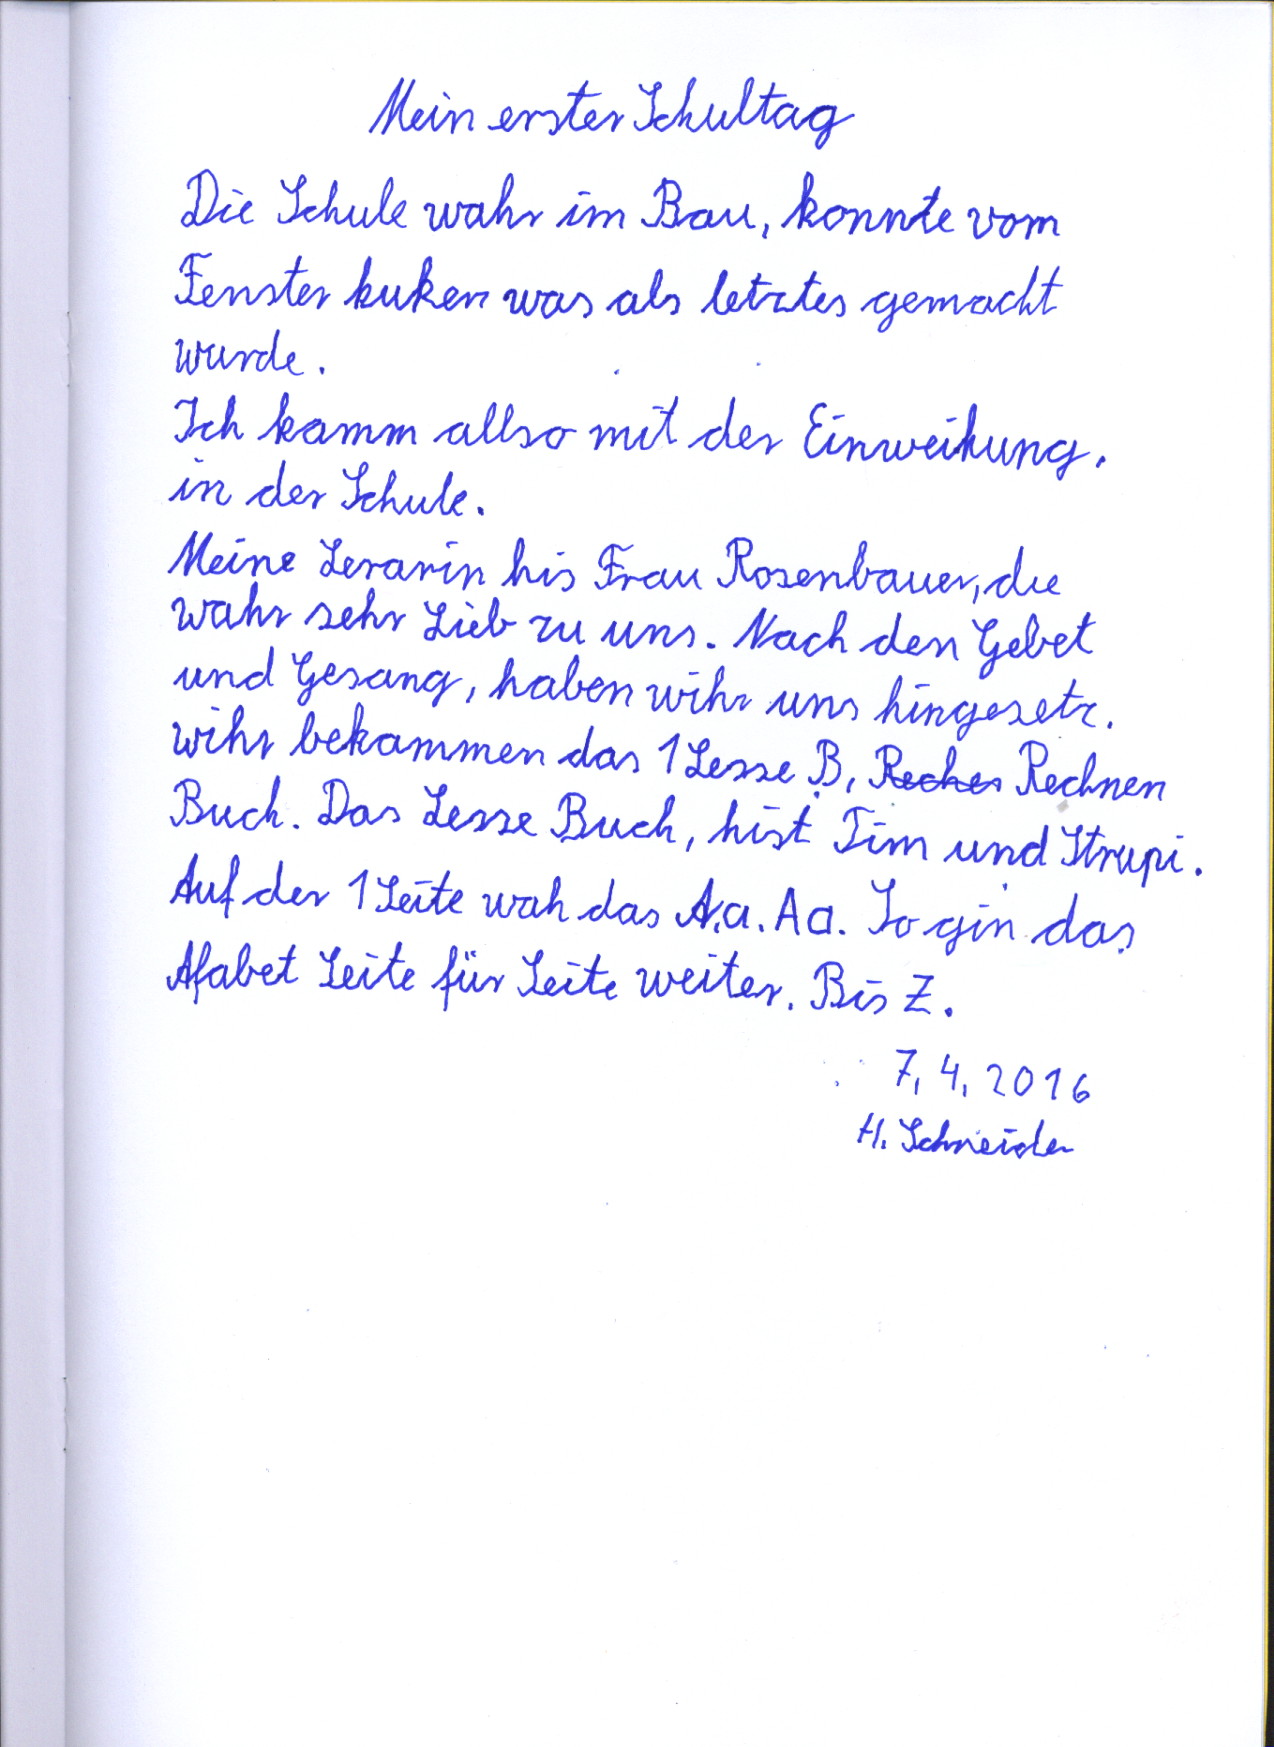 Mein erster Schultag
Die Schule wahr im Bau, konnte vom
Fenster kuken was als letztes gemacht
wurde.
Ich kamm allso mit der Einweihung.
in der Schule.
Meine Lerarin his Frau Rosenbauer, die
wahr sehr Lieb zu uns. Nach den Gebet
und Gesang, haben wihr uns hingesetz.
wihr bekammen das 1 Lesse B, Reches Rechnen
Buch. Das Lesse Buch, hist Tim und Strupi.
Auf der 1 Seite wah das A.a. Aa. So gin das
Afabet Seite für Seite weiter. Bis Z.
7, 4, 2016
H. Schneider